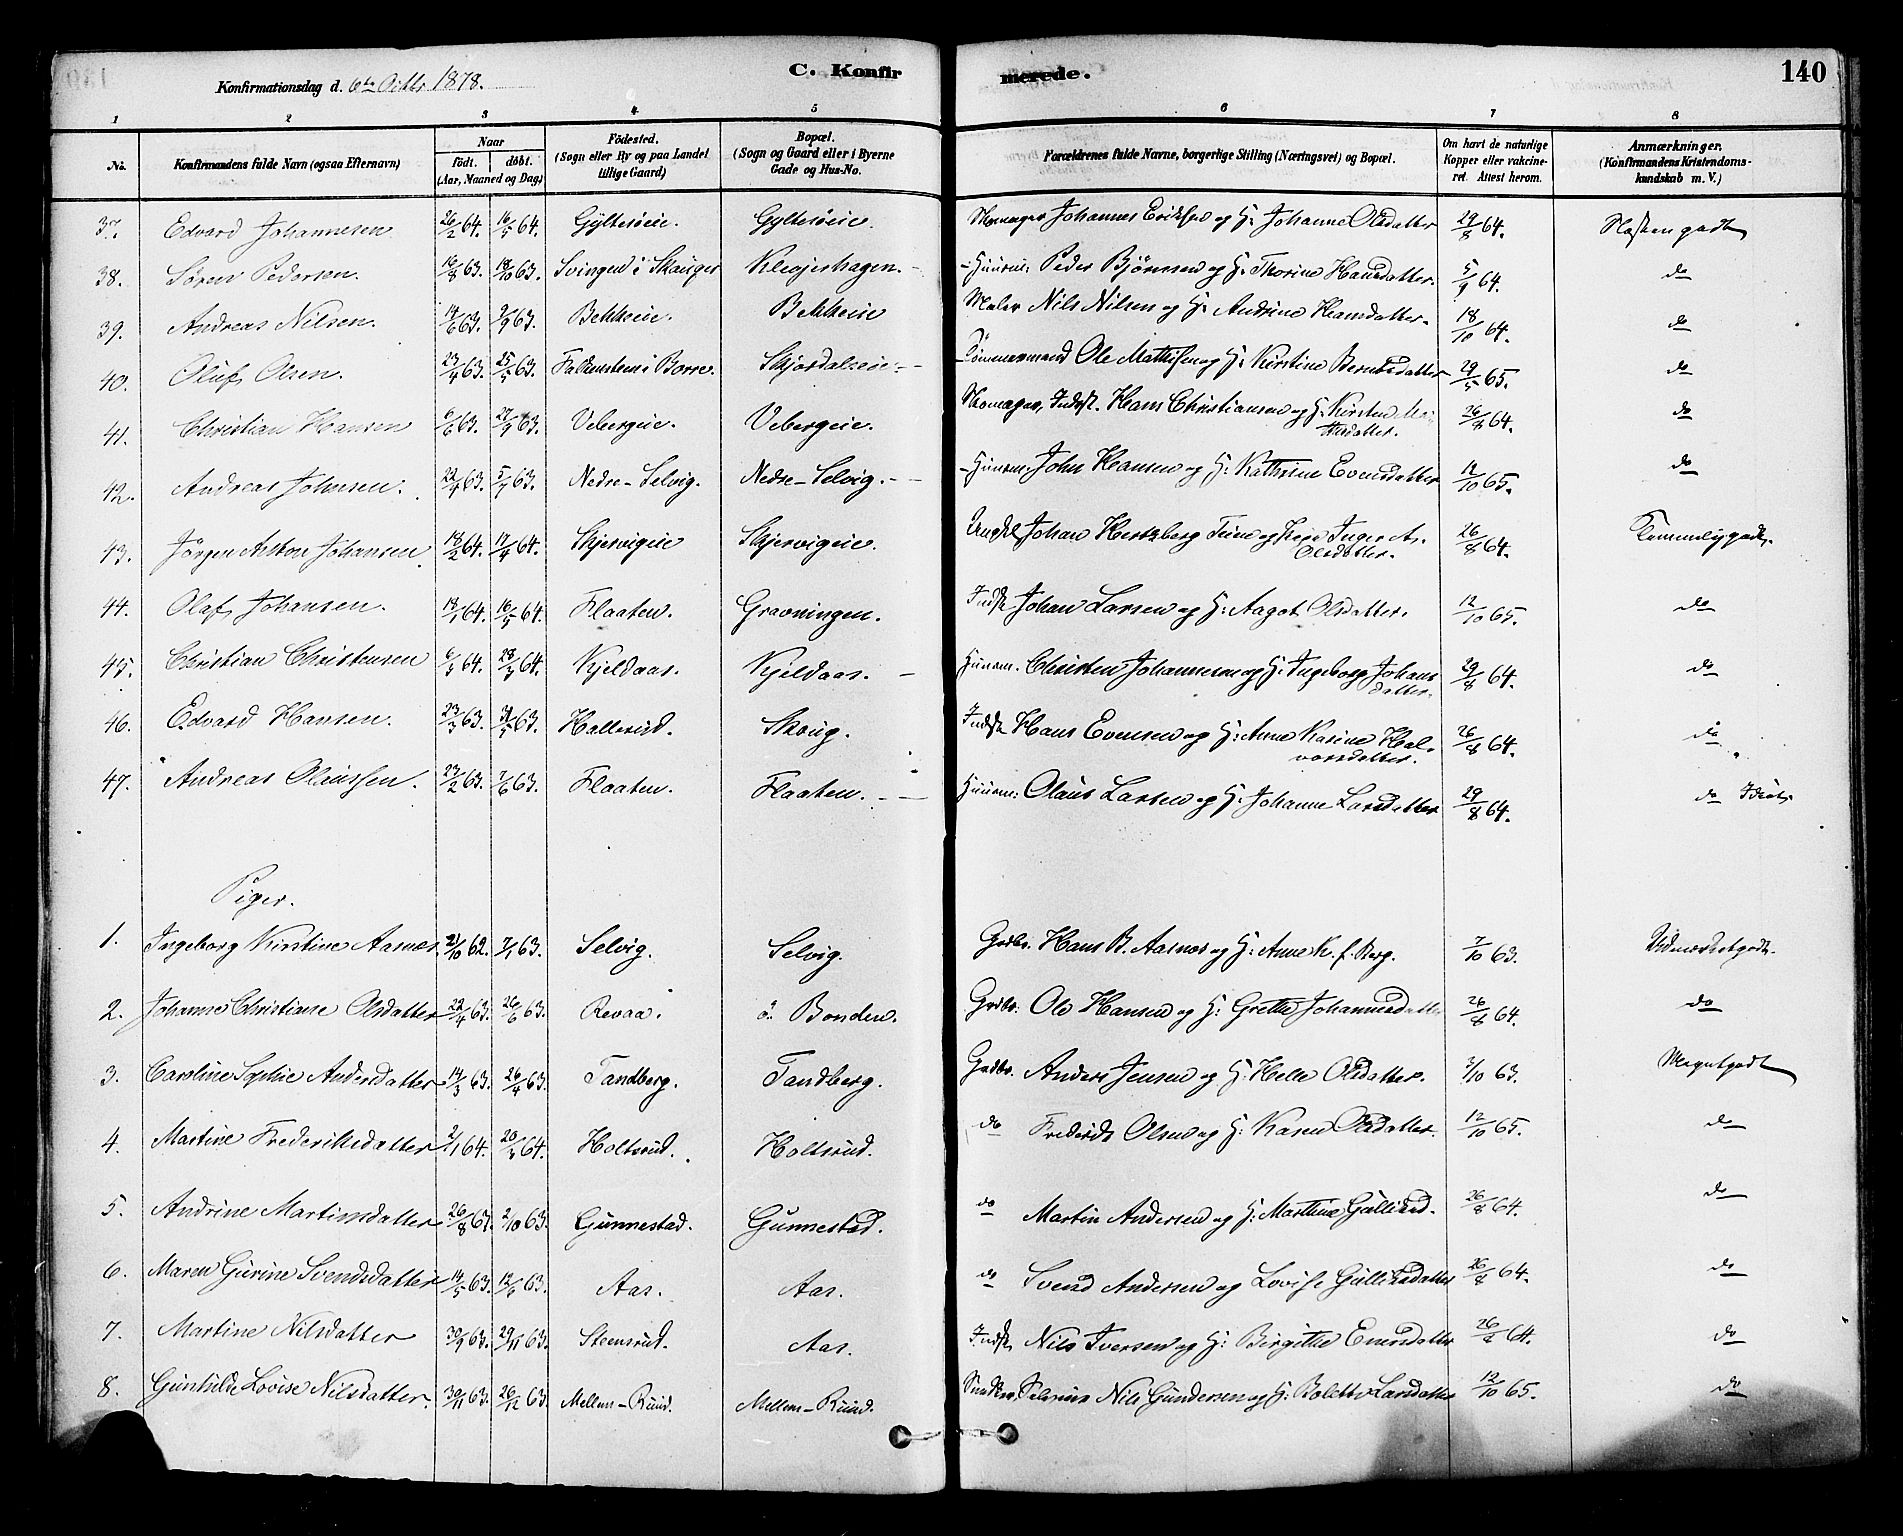 Konfirmationsdag d. 6te Octbr 1878. C. Konfirmerede. 140
1 2 3 4 5 6 7 8
No. Konfirmandens fulde Navn (ogsaa Efternavn) Naar født. døbt. (Aar, Maaned og Dag) Fødested. (Sogn eller By og paa Landet tillige Gaard) Bopæl. (Sogn og Gaard eller i Byerne Gade og Hus-No. Forældrenes fulde Navne, borgerlige Stilling (Næringsvei) og Bopæl. Om havt de naturlige Kopper eller vakcineret. Attest herom. Anmærkninger. (Konfirmandens Kristendomskundskab m. V.)
37. Edvard Johannesen 26/2 64. 16/5 64. Gylteseie. Gylteseie. Skomager Johannes Eriksen og H: Johanne Olsdatter 29/8 64. Næsten godt
38. Søren Pedersen. 16/8 63. 18/10 63. Svingen i Skauger Kleojershagen. Huusm: Peder Bjørnsen og H: Thorine Hansdatter. 5/9 64. do
39. Andreas Nilsen. 14/6 63. 9/9 63. Bekkeeie. Bekkeeie Maler Nils Nilsen og H: Andrine Hansdatter. 18/10 64. do
40. Oluf Olsen. 23/4 63. 25/5 63. Falkensten i Borre. Skjørdalseie. Tømmermand Ole Mathisen og H: Kirstine Berntsdatter 29/5 65. do
41. Christian Hansen 6/6 63. 27/9 63. Vebergeie. Vebergeie. Skomager, Indst. Hans Christiansen og H: Kirsten Mathisdatter. 26/8 64. do
42. Andreas Johnsen. 22/4 63. 5/7 63. Nedre-Selvig. Nedre-Selvig. Huusm: John Hansen og H: Kathrine Evensdatter 12/10 65. do
43. Jørgen Anton Johansen 18/2 64. 17/4 64. Skjervigeie Skjervigeie. Ungkl Johan Hertzberg Teien og Pige Inger A. Olsdatter. 26/8 64. Temmelig godt.
44. Olaf Johansen. 18/1 64. 16/5 64. Flaaten. Gravningen. Indst Johan Larsen og H: Aagot Olsdatter. 12/10 65. do
45. Christian Christensen 6/3 64. 28/3 64. Kjeldaas. Kjeldaas. Huusm. Christen Johannesen og H: Ingeborg Johansdatter. 29/8 64. do
46. Edvard Hansen. 23/3 63. 31/5 63. Hallerud. Skoug. Indst Hans Evensen og H: Anne Karine Halvorsdatter. 26/8 64. do
47. Andreas Olaussen. 23/2 63. 7/6 63. Flaaten. Flaaten. Huusm: Olaus Larsen og H: Johanne Larsdatter 29/8 64. do Idiot.
Piger.
1. Ingeborg Kirstine Aasnæs. 21/10 62. 7/1 63. Selvig. Selvig. Gbdbr. Hans B. Aasnæs og H: Anne K. f. Berg. 7/10 63. Udmærket godt.
2. Johanne Christiane Olsdatter 22/4 63. 26/6 63. Revaa. ø. Bonden. Grdbr. Ole Hansen og H: Grethe Johannesdatter 26/8 64. do
3. Caroline Sophie Andersdatter 14/3 63. 26/4 63. Tandberg. Tandberg. Grdbr. Anders Jensen og H: Helle Olsdatter. 3/10 63. Meget godt
4. Martine Frederiksdatter 2/1 64. 20/3 64. Holtsrud. Holtsrud. do Frederik Olsen og H: Karen Olsdatter. 12/10 65. do
5. Andrine Martinsdatter 26/8 63. 2/10 63. Gunnestad. Gunnestad. do Martin Andersen og H: Martine Gulliksd. 26/8 64. do
6. Maren Gurine Svendsdatter 14/5 63. 12/6 63. Aas. Aas. do Svend Andersen og Lovise Gulliksdatter 26/8 64. do
7. Martine Nilsdatter 30/9 63. 29/11 63. Steensrud. Aas. Indst Nils Iversen og H: Birgitte Enersdatter 26/8 64. do
8. Gunhilde Lovise Nilsdatter. 30/11 63. 26/12 63. Mellem-Ruud. Mellem-Ruud. Nils Gundersen og H: Bolette Larsdatter 12/10 65. do